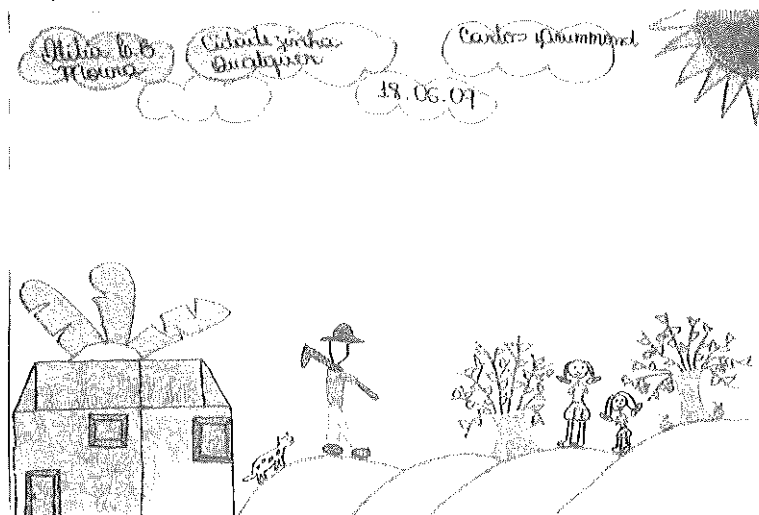 Moura
Cidadezinha
Qualquer
Carlos Drummond
18.06.09